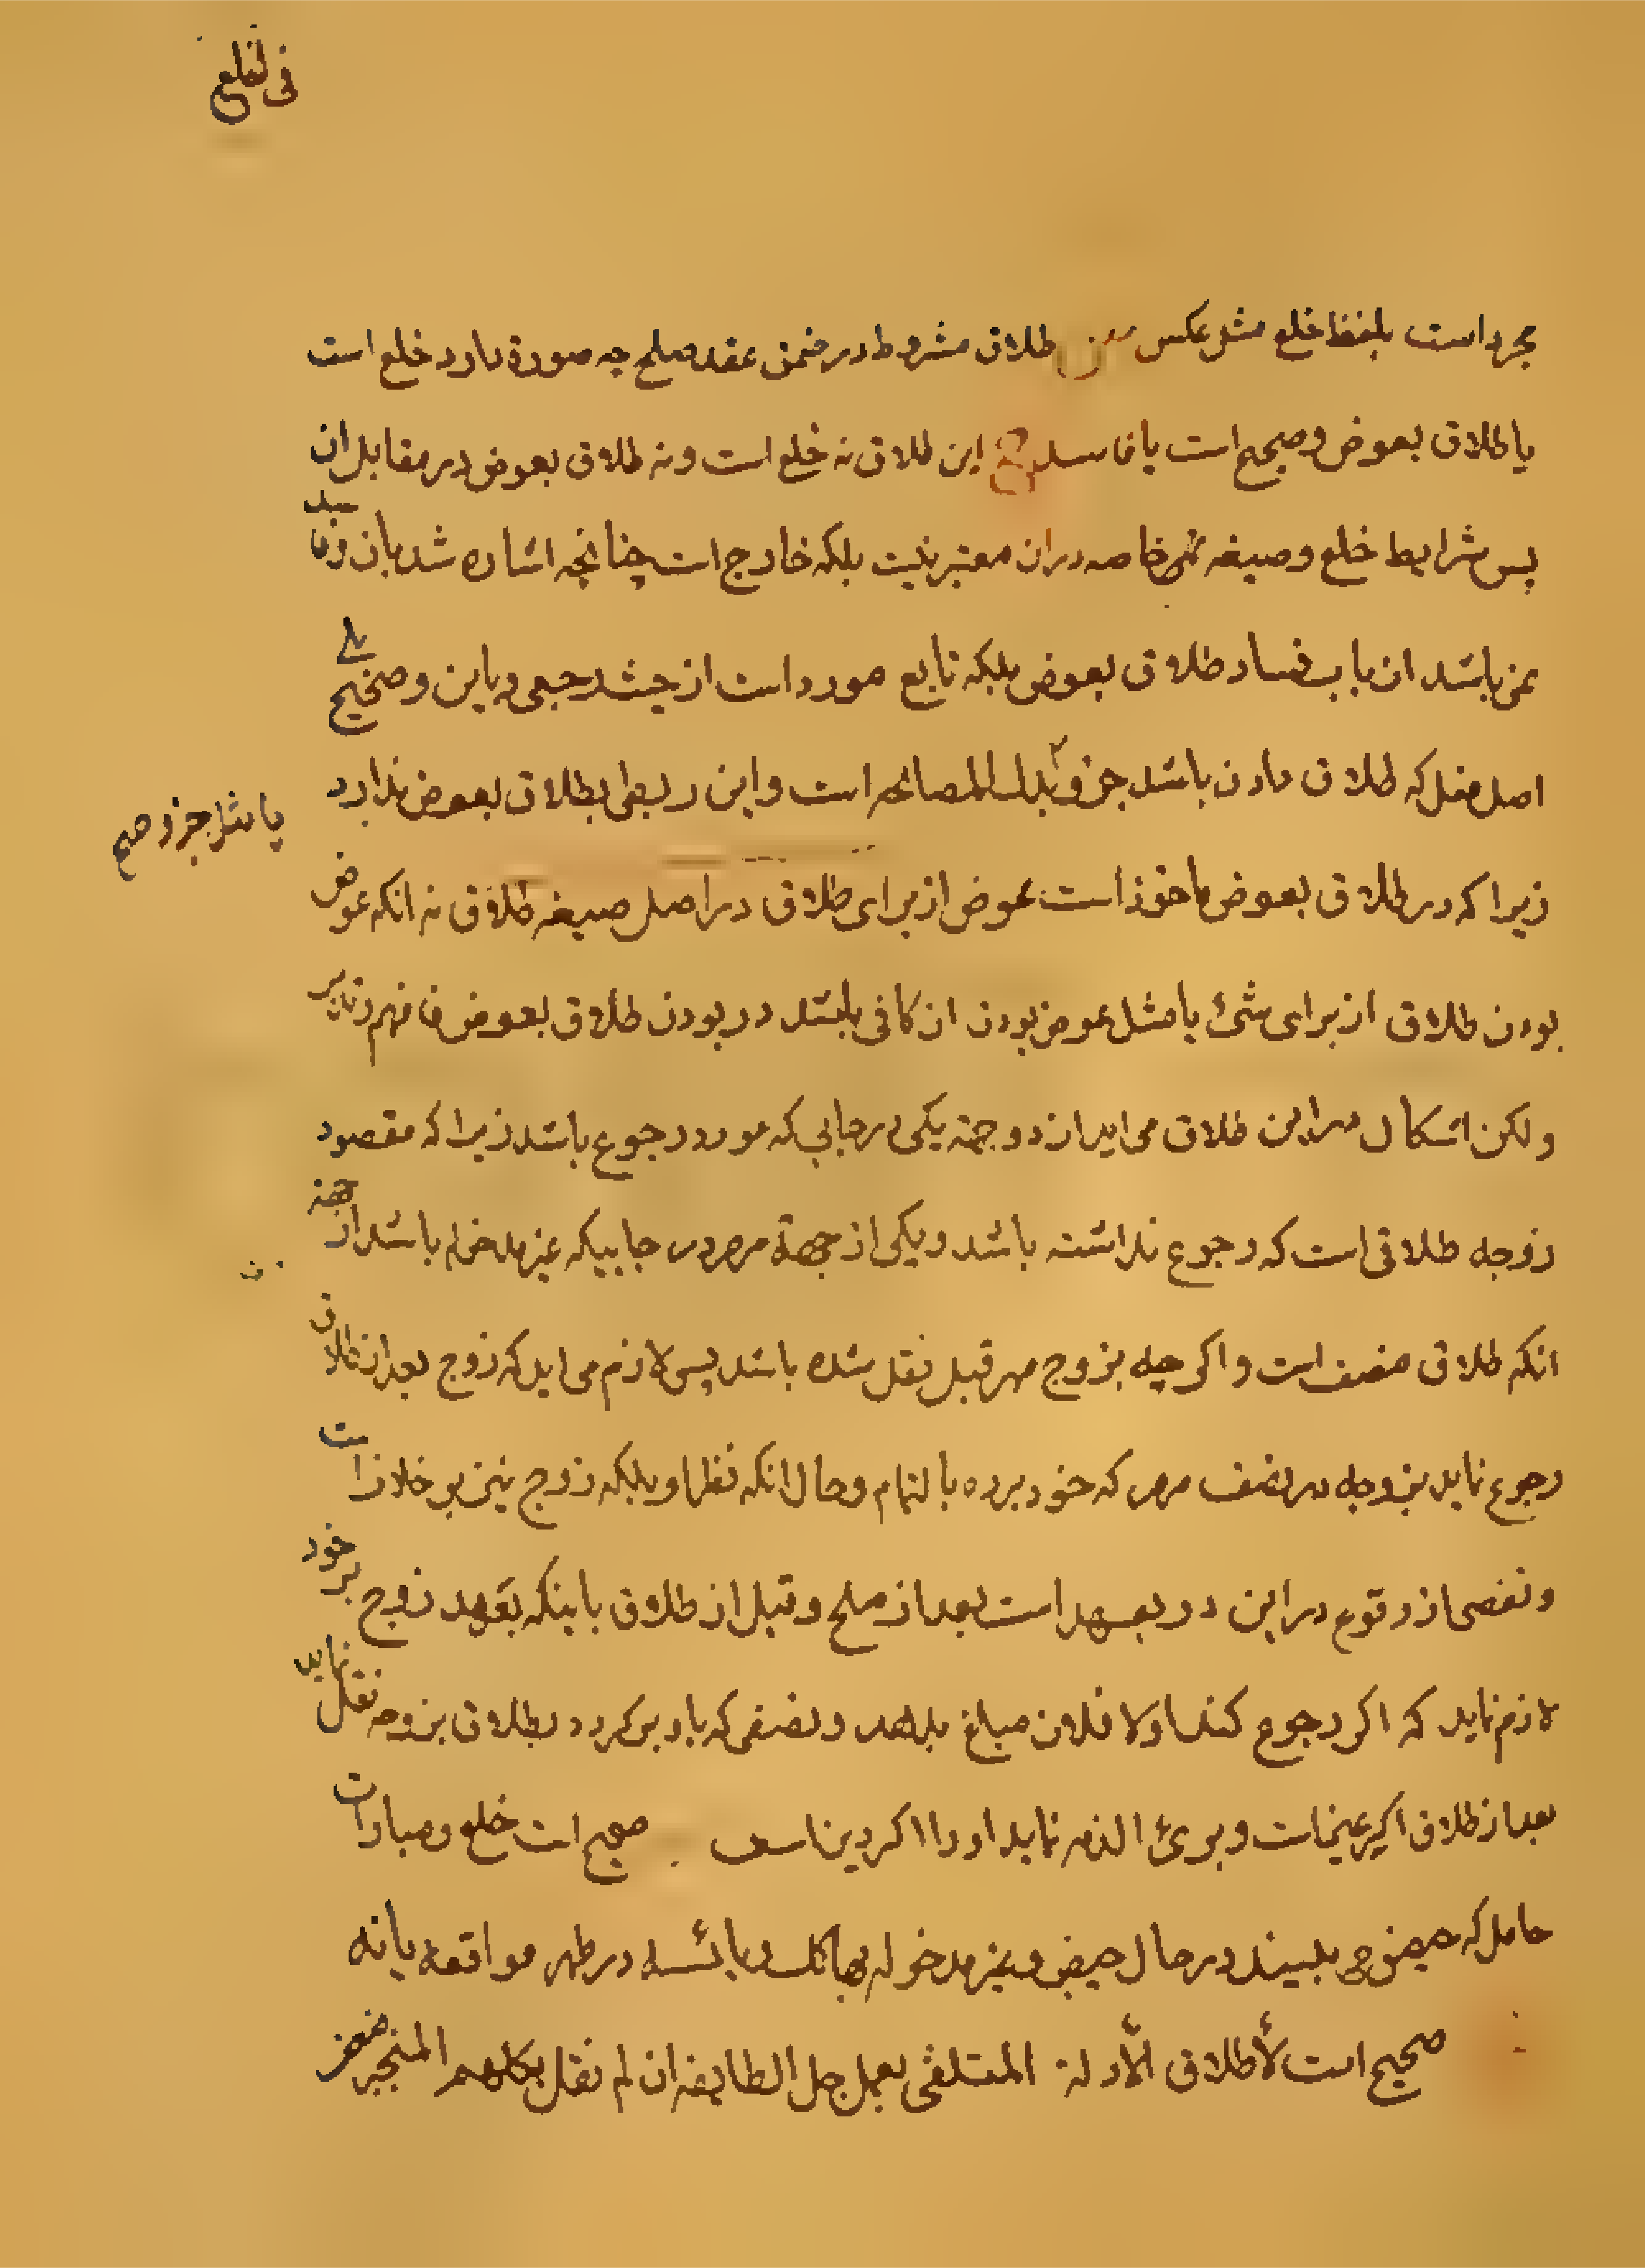 فی الخلع
مجرد است بلفظ خلع مثل عکس طلاق مشروط در ضمن عقد صلح چه صورة دارد خلع است
یا طلاق بعوض و صحیح است یا فاسد ج این طلاق نه خلع است و نه طلاق بعوض در مقابل ان
پس شرایط خلع و صیغه خاصه دران معتبر نیست بلکه خارج است چنانچه اشاره شد بان و
نمی باشد از باب فساد طلاق بعوض بلکه تابع مورد است از حیث رجعی و باین و صحیح بلی
اصل فعل که طلاق دادن باشد جزو بدل المصالحه است و این ربطی بطلاق بعوض ندارد
یا مثل جزو صح
زیرا که در طلاق بعوض ماخوذ است عوض از برای طلاق در اصل صیغه طلاق نه انکه عوض
بودن طلاق از برای شئ یا مثل عوض بودن ان کافی باشد در بودن طلاق بعوض فافهم و تدبر
ولکن اشکال در این طلاق می اید از دو جهة یکی در جایی که مورد رجوع باشد زیرا که مقصود
زوجه طلاقی است که رجوع نداشته باشد و یکی از جهة مهر در جاییکه غیر مدخوله باشد از جهة
انکه طلاق منصف است و اکر چه بزوج مهر قبل نقل شده باشد پس لازم می اید که زوج بعد از طلاق
رجوع نماید بزوجه در نصف مهر که خود برده بالتمام و حال انکه نظر او بلکه زوج نیز بر خلاف است
و تفصی از وقوع در این دو بعهد است بعد از صلح و قبل از طلاق باینکه بعهد زوج بر خود
لازم نماید که اکر رجوع کند اولا فلان مبلغ بدهد و نصفی که باو بر کردد بطلاق بزوجه نقل نماید
بعد از طلاق اکر عین است و برئ الذمه نماید او را اکر دین است صحیح است خلع و مبارات
حامل که حیض می بیند در حال حیض و غیر مدخول بها کذلک و یائسه در طهر مواقعه یا نه
صحیح است لأطلاق الأدلة المتلقی بعمل جل الطایفه ان لم نقل بکلهم المنجبر